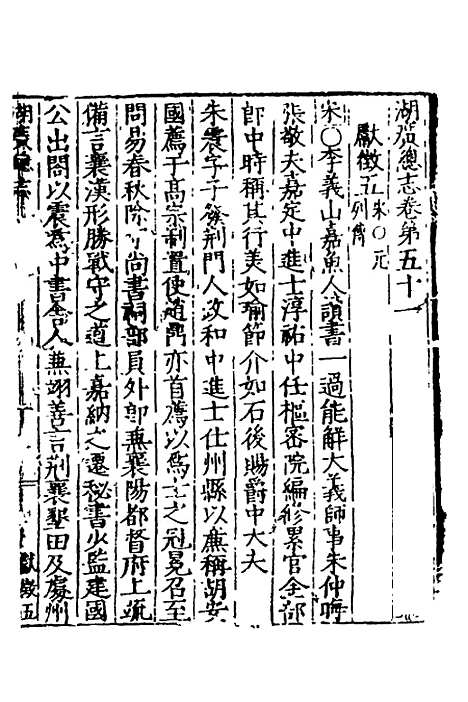 湖廣總志卷第五十一
獻徵五 列傳 宋○元
宋○李義山嘉魚人讀書一過能解大義師事朱仲晦
張敬夫嘉定中進士淳祐中任樞密院編修累官金部
郎中時稱其行美如瑜節介如石後賜爵中大夫
朱震字子發荆門人政和中進士仕州縣以㢘稱胡安
國薦于髙宗制置使趙鼎亦首薦以爲士之冠冕召至
問易春秋除 尚書祠部員外郎兼襄陽都督府上疏
備言襄漢形勝戰守之道上嘉納之遷秘書少監建國
公出閤以震爲中書舎人兼翊善言荆襄墾田及䖍州
獻徵五